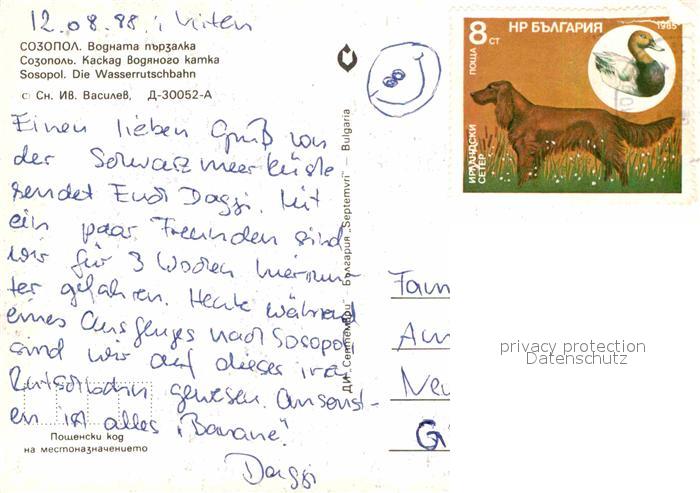 12.08.88, Kiten
СОЗОПОЛ. Водната пързалка
Созополь. Каскад водяного катка
Sosopol. Die Wasserrutschbahn
© Сн. Ив. Василев, Д-30052-А
Einen lieben Gruß von
der Schwarzmeerküste
sendet Euch Daggi. Mit
ein paar Freunden sind
wir für 3 Wochen hierrun-
ter gefahren. Heute während
eines Ausfluges nach Sosopol
sind wir auf dieser irren
Rutschbahn gewesen. Ansonst-
en ist alles „Banane".
Daggi
Пощенски код
на местоназначението
ДИ „Септември" — България „Septemvri" — Bulgaria
НР БЪЛГАРИЯ
1985
8 СТ
ПОЩА
ИРЛАНДСКИ
СЕТЕР
Fam
Am
Neu
G
privacy protection
Datenschutz